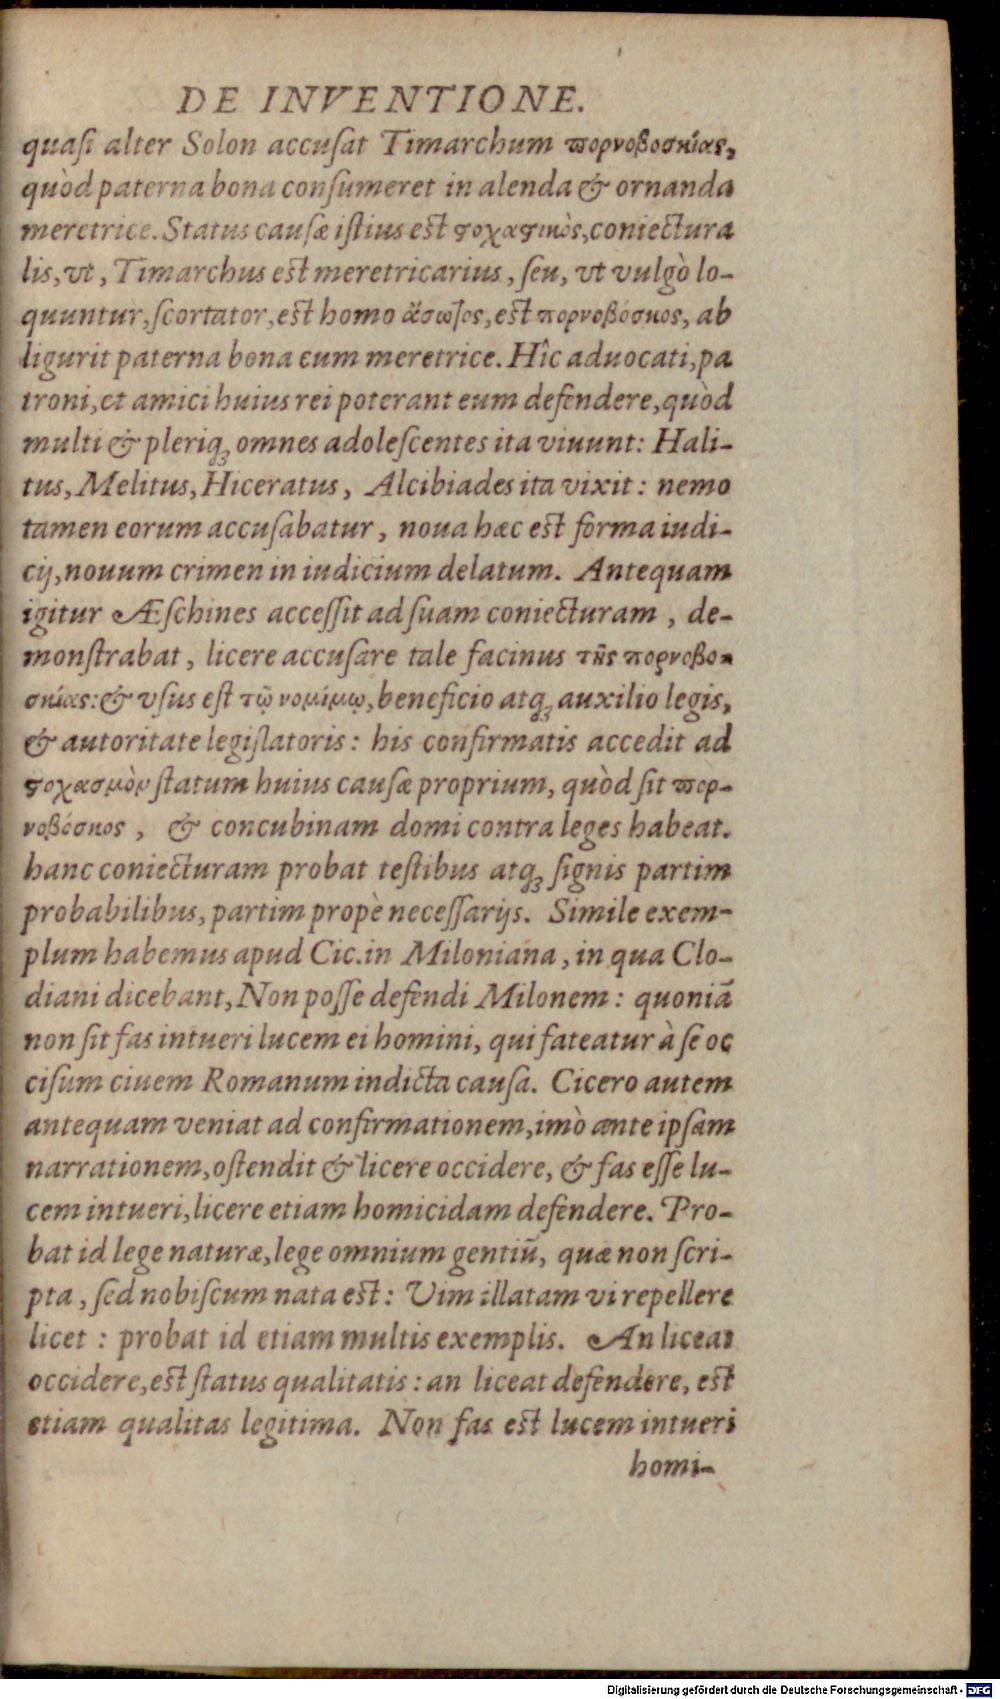 DE INVENTIONE.
quaſi alter Solon accuſat Timarchum πορνοβοσκίας,
quòd paterna bona conſumeret in alenda & ornanda
meretrice. Status cauſæ iſtius eſt ϛοχαϛικὸς, coniectura
lis, vt, Timarchus eſt meretricarius, ſeu, vt vulgò lo-
quuntur, ſcortator, est homo ἄσωτος, est πορνοβόσκος, ab
ligurit paterna bona cum meretrice. Hîc aduocati, pa
troni, et amici huius rei poterant eum defendere, quòd
multi & pleriqꝫ omnes adoleſcentes ita viuunt: Hali-
tus, Melitus, Hiceratus, Alcibiades ita vixit: nemo
tamen eorum accuſabatur, noua hæc est forma iudi-
cij, nouum crimen in iudicium delatum. Antequam
igitur Æſchines acceſſit ad ſuam coniecturam, de-
monſtrabat, licere accuſare tale facinus τῆς πορνοβο-
σκίας: & vſus eſt τῷ νομίμῳ, beneficio atqꝫ auxilio legis,
& autoritate legiſlatoris: his confirmatis accedit ad
ϛοχασμὸν ſtatum huius cauſæ proprium, quòd ſit πορ-
νοβόσκος, & concubinam domi contra leges habeat.
hanc coniecturam probat teſtibus atqꝫ ſignis partim
probabilibus, partim propè neceſſarijs. Simile exem-
plum habemus apud Cic. in Miloniana, in qua Clo-
diani dicebant, Non poſſe defendi Milonem: quoniā
non ſit fas intueri lucem ei homini, qui fateatur à ſe oc
ciſum ciuem Romanum indicta cauſa. Cicero autem
antequam veniat ad confirmationem, imò ante ipſam
narrationem, oſtendit & licere occidere, & fas eſſe lu-
cem intueri, licere etiam homicidam defendere. Pro-
bat id lege naturæ, lege omnium gentiū, quæ non ſcri-
pta, ſed nobiſcum nata est: Vim illatam vi repellere
licet: probat id etiam multis exemplis. An liceat
occidere, est ſtatus qualitatis: an liceat defendere, est
etiam qualitas legitima. Non fas est lucem intueri
homi-
Digitalisierung gefördert durch die Deutsche Forschungsgemeinschaft - DFG